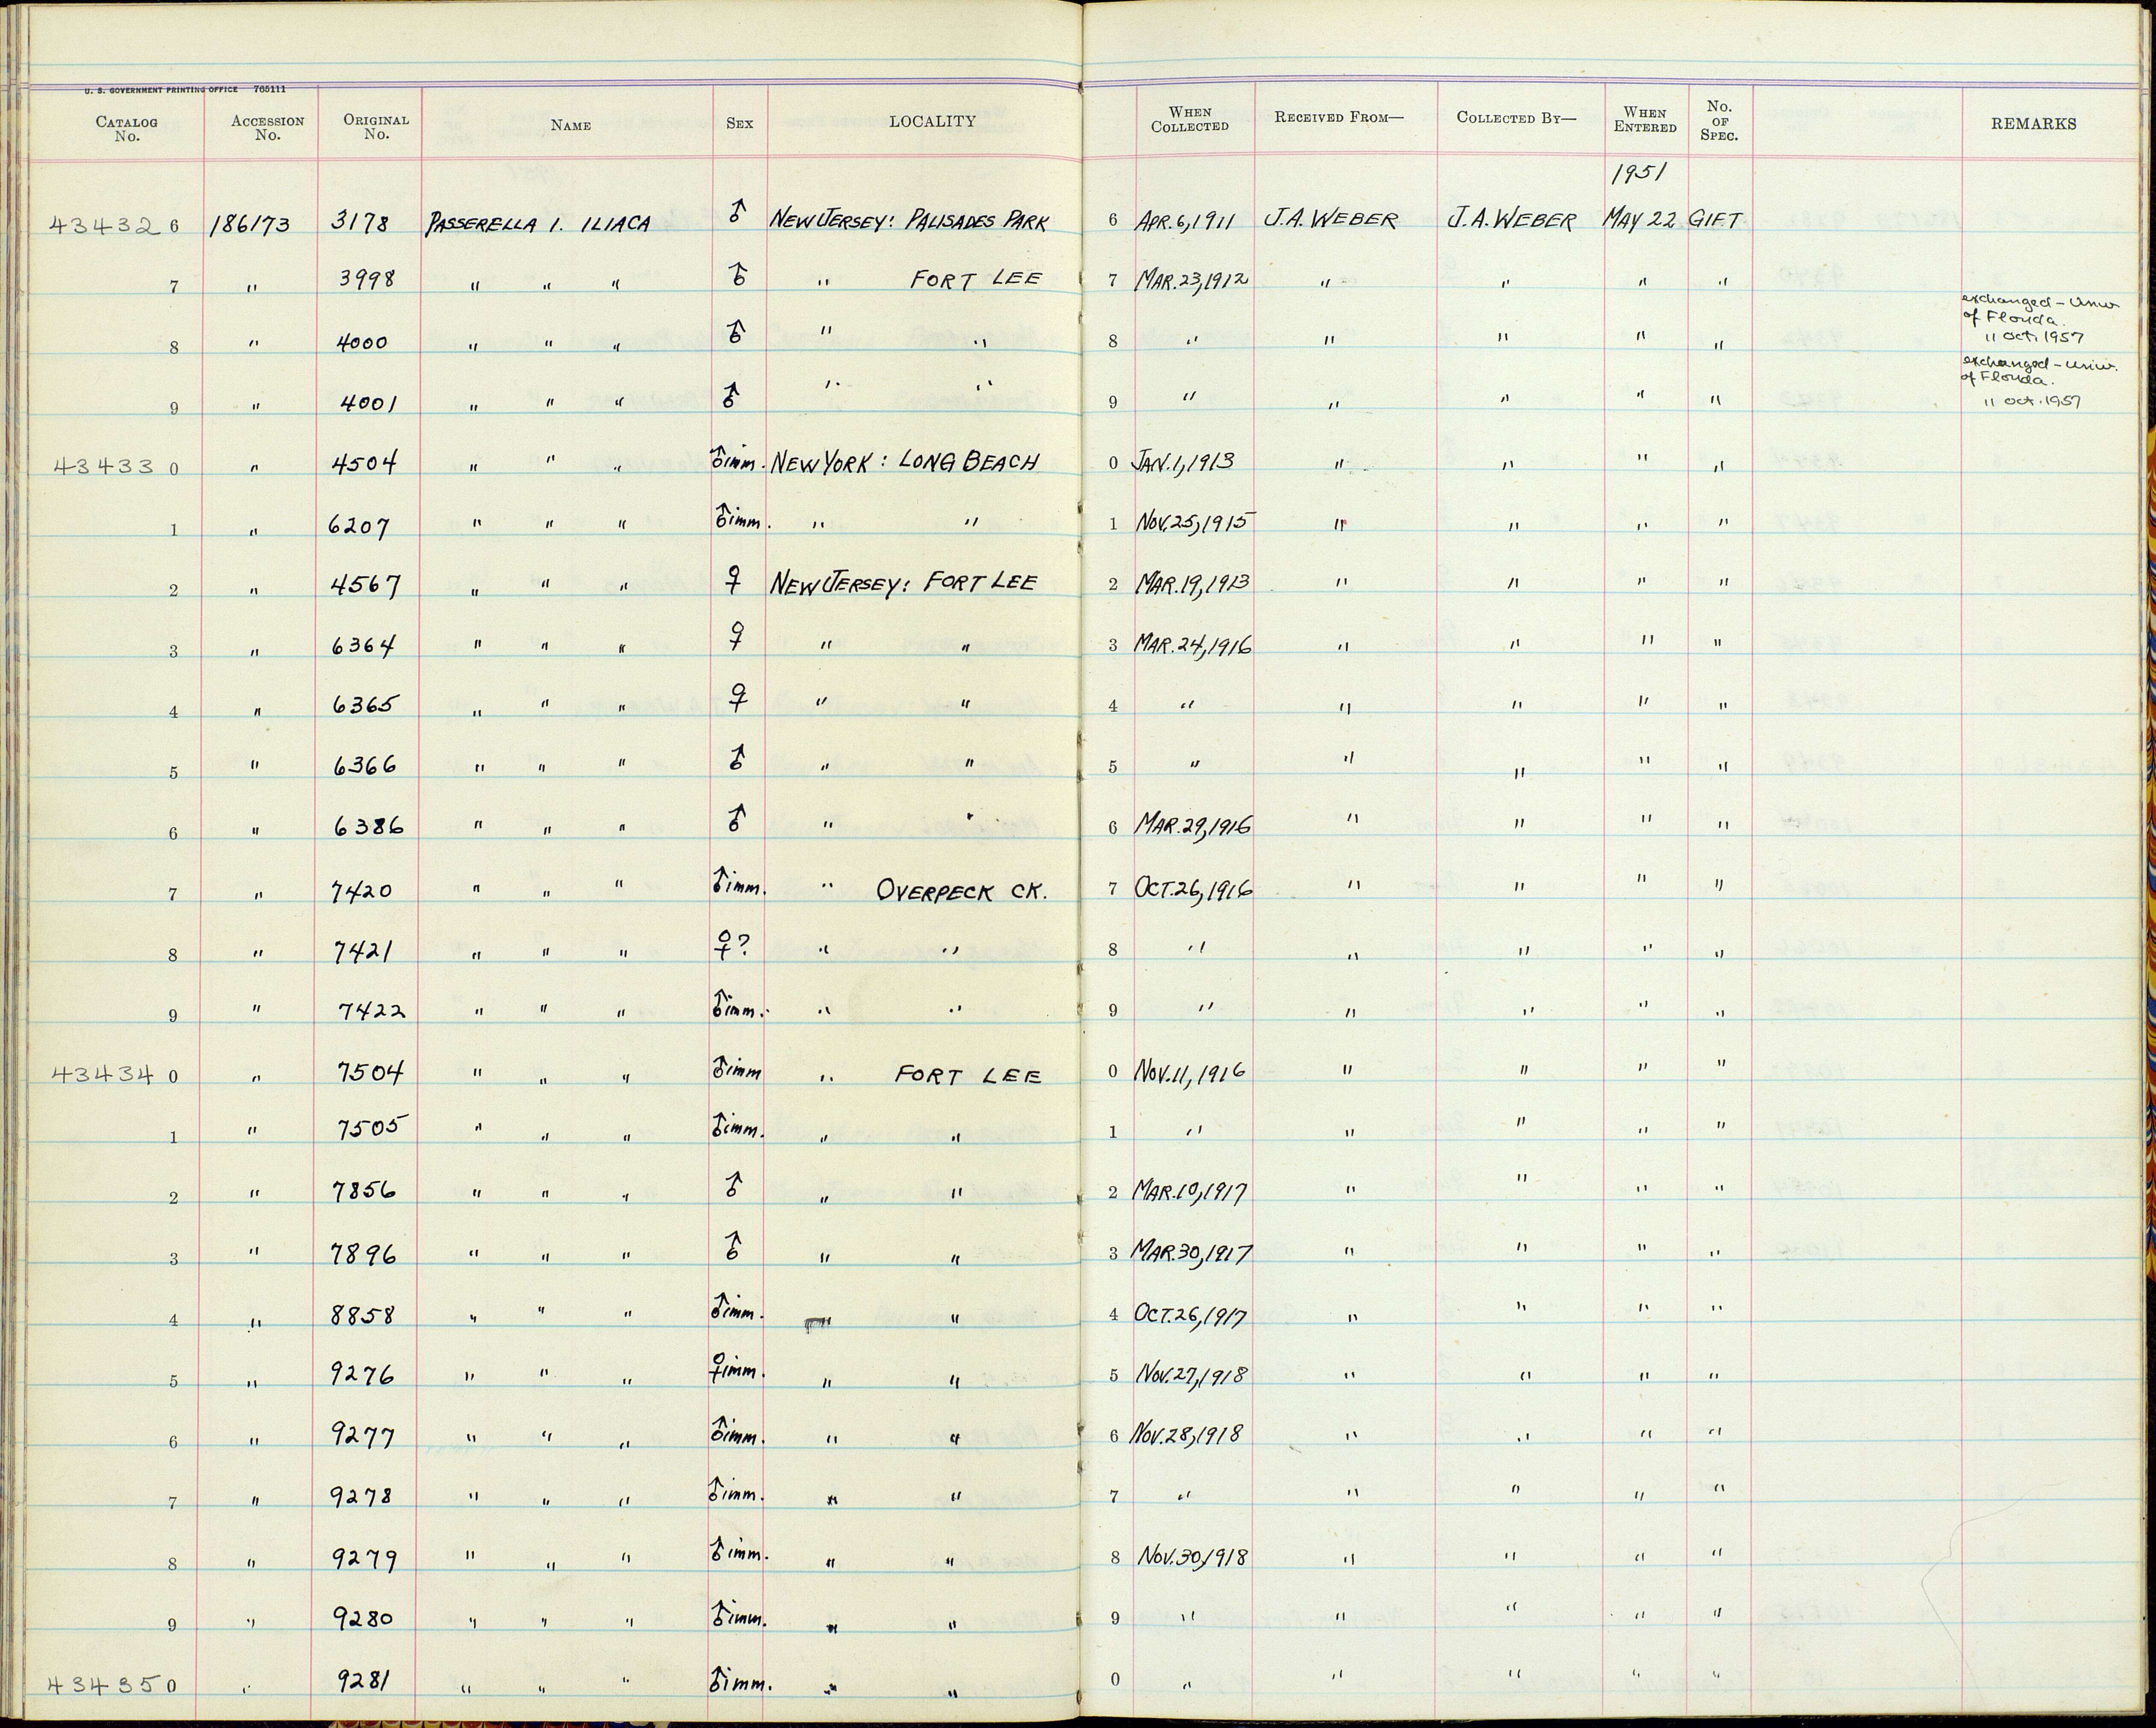 U. S. GOVERNMENT PRINTING OFFICE 765111
CATALOG No. ACCESSION No. ORIGINAL No. NAME SEX LOCALITY WHEN COLLECTED RECEIVED FROM— COLLECTED BY— WHEN ENTERED NO. OF SPEC. REMARKS
1951
43432 6 186173 3178 PASSERELLA I. ILIACA ♂ NEW JERSEY: PALISADES PARK 6 APR. 6, 1911 J.A. WEBER J.A. WEBER MAY 22 GIFT
7 " 3998 " " " ♂ " FORT LEE 7 MAR. 23, 1912 " " " "
8 " 4000 " " " ♂ " " 8 " " " " " exchanged - Univ. of Florida. 11 Oct. 1957
9 " 4001 " " " ♂ " " 9 " " " " " exchanged - Univ. of Florida. 11 Oct. 1957
43433 0 " 4504 " " " ♂ imm. NEW YORK: LONG BEACH 0 JAN. 1, 1913 " " " "
1 " 6207 " " " ♂ imm. " " 1 NOV. 25, 1915 " " " "
2 " 4567 " " " ♀ NEW JERSEY: FORT LEE 2 MAR. 19, 1913 " " " "
3 " 6364 " " " ♀ " " 3 MAR. 24, 1916 " " " "
4 " 6365 " " " ♀ " " 4 " " " " "
5 " 6366 " " " ♂ " " 5 " " " " "
6 " 6386 " " " ♂ " " 6 MAR. 29, 1916 " " " "
7 " 7420 " " " ♂ imm. " OVERPECK CK. 7 OCT. 26, 1916 " " " "
8 " 7421 " " " ♀? " " 8 " " " " "
9 " 7422 " " " ♂ imm. " " 9 " " " " "
43434 0 " 7504 " " " ♂ imm " FORT LEE 0 NOV. 11, 1916 " " " "
1 " 7505 " " " ♂ imm. " " 1 " " " " "
2 " 7856 " " " ♂ " " 2 MAR. 10, 1917 " " " "
3 " 7896 " " " ♂ " " 3 MAR. 30, 1917 " " " "
4 " 8858 " " " ♂ imm. " " 4 OCT. 26, 1917 " " " "
5 " 9276 " " " ♀ imm. " " 5 NOV. 27, 1918 " " " "
6 " 9277 " " " ♂ imm. " " 6 NOV. 28, 1918 " " " "
7 " 9278 " " " ♂ imm. " " 7 " " " " "
8 " 9279 " " " ♂ imm. " " 8 NOV. 30, 1918 " " " "
9 " 9280 " " " ♂ imm. " " 9 " " " " "
43435 0 " 9281 " " " ♂ imm. " " 0 " " " " "